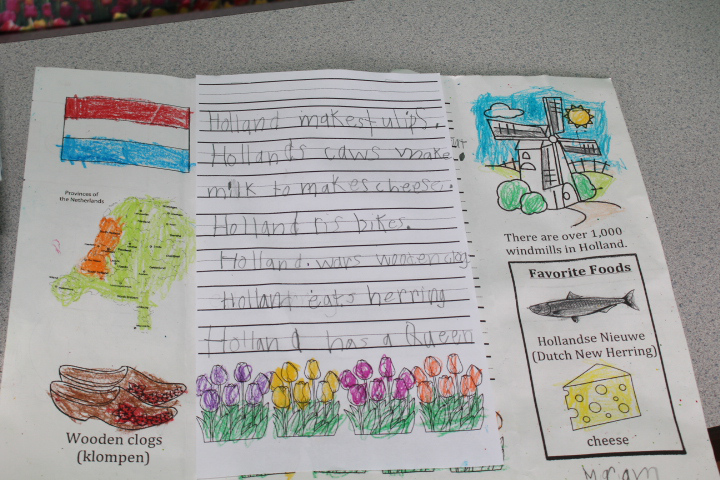 Provinces of
the Netherlands
Wooden clogs
(klompen)
Holland makes tulips.
Hollands caws make
milk to makes cheese.
Holland ris bikes.
Holland. wars wooten clog
Holland eats herring
Holland has a Queen
There are over 1,000
windmills in Holland.
Favorite Foods
Hollandse Nieuwe
(Dutch New Herring)
cheese
Miriam